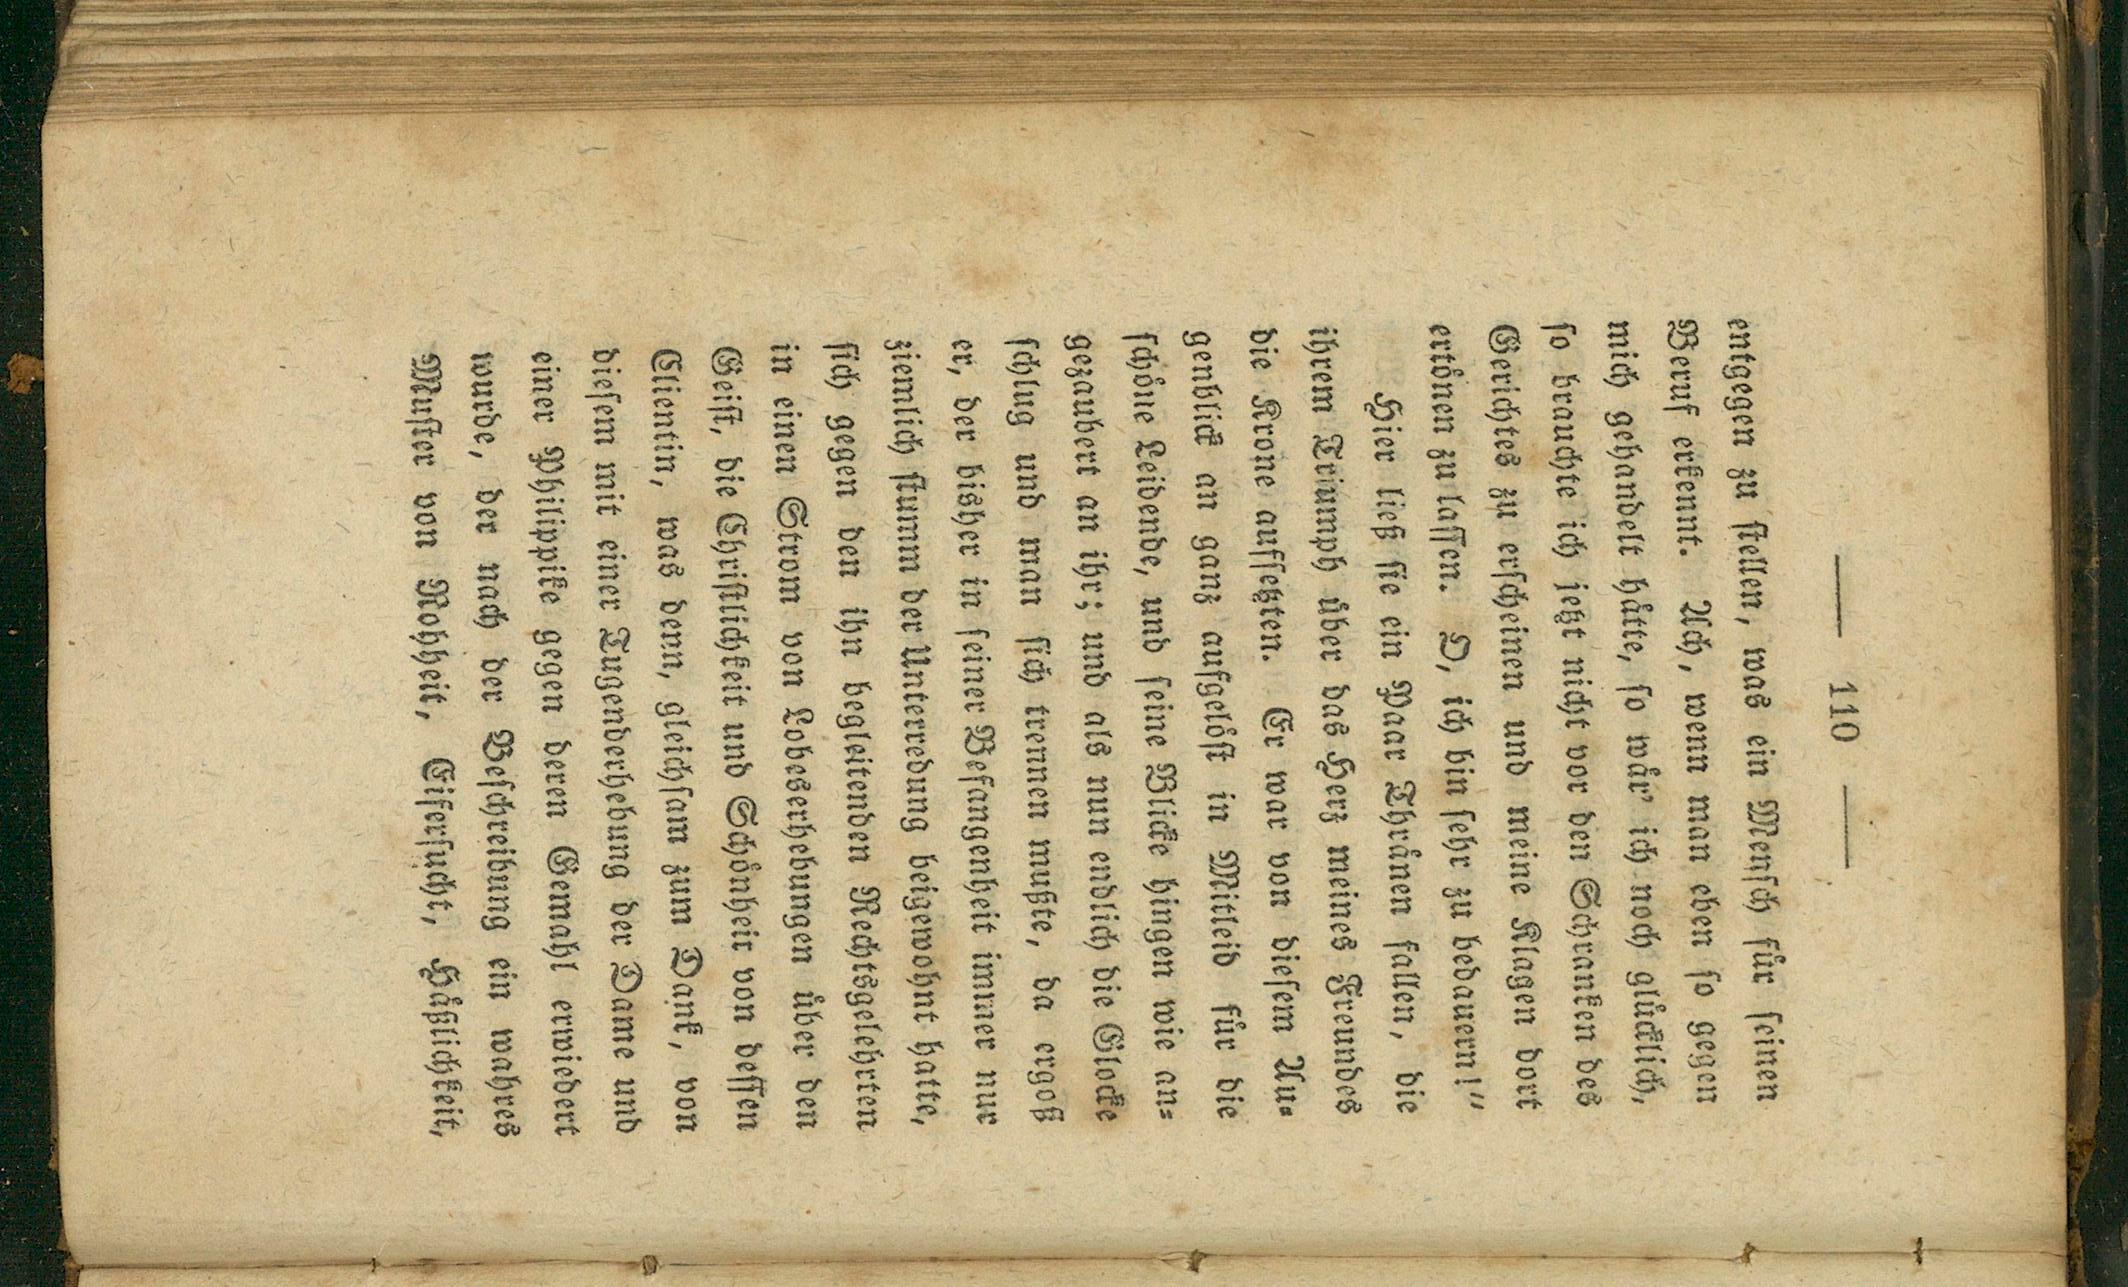 — 110 —
entgegen zu ſtellen, was ein Menſch fuͤr ſeinen
Beruf erkennt. Ach, wenn man eben ſo gegen
mich gehandelt haͤtte, ſo waͤr' ich noch gluͤcklich,
ſo brauchte ich jetzt nicht vor den Schranken des
Gerichtes zu erſcheinen und meine Klagen dort
ertoͤnen zu laſſen. O, ich bin ſehr zu bedauern!“
Hier ließ ſie ein Paar Thraͤnen fallen, die
ihrem Triumph uͤber das Herz meines Freundes
die Krone aufſetzten. Er war von dieſem Au⸗
genblick an ganz aufgeloͤſt in Mitleid fuͤr die
ſchoͤne Leidende, und ſeine Blicke hingen wie an⸗
gezaubert an ihr; und als nun endlich die Glocke
ſchlug und man ſich trennen mußte, da ergoß
er, der bisher in ſeiner Befangenheit immer nur
ziemlich ſtumm der Unterredung beigewohnt hatte,
ſich gegen den ihn begleitenden Rechtsgelehrten
in einen Strom von Lobeserhebungen uͤber den
Geiſt, die Chriſtlichkeit und Schoͤnheit von deſſen
Clientin, was denn, gleichſam zum Dank, von
dieſem mit einer Tugenderhebung der Dame und
einer Philippike gegen deren Gemahl erwiedert
wurde, der nach der Beſchreibung ein wahres
Muſter von Rohheit, Eiferſucht, Haͤßlichkeit,